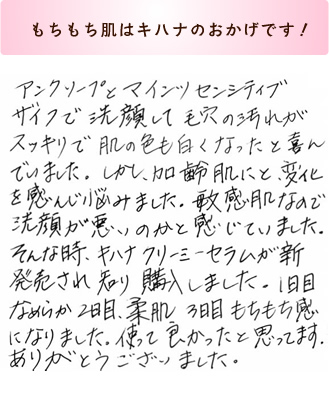 もちもち肌はキハナのおかげです!
アンクソープとマインツセンシティブ
ザイフで洗顔して毛穴の汚れが
スッキリで肌の色も白くなったと喜ん
でいました。しかし、加齢肌にと、変化
を感んじ悩みました。敏感肌なので
洗顔が悪いのかと感じていました。
そんな時、キハナクリーミーセラムが新
発売され知り購入しました。1日目
なめらか2日目、柔肌3日目もちもち感
になりました。使って良かったと思ってます.
ありがとうございました。